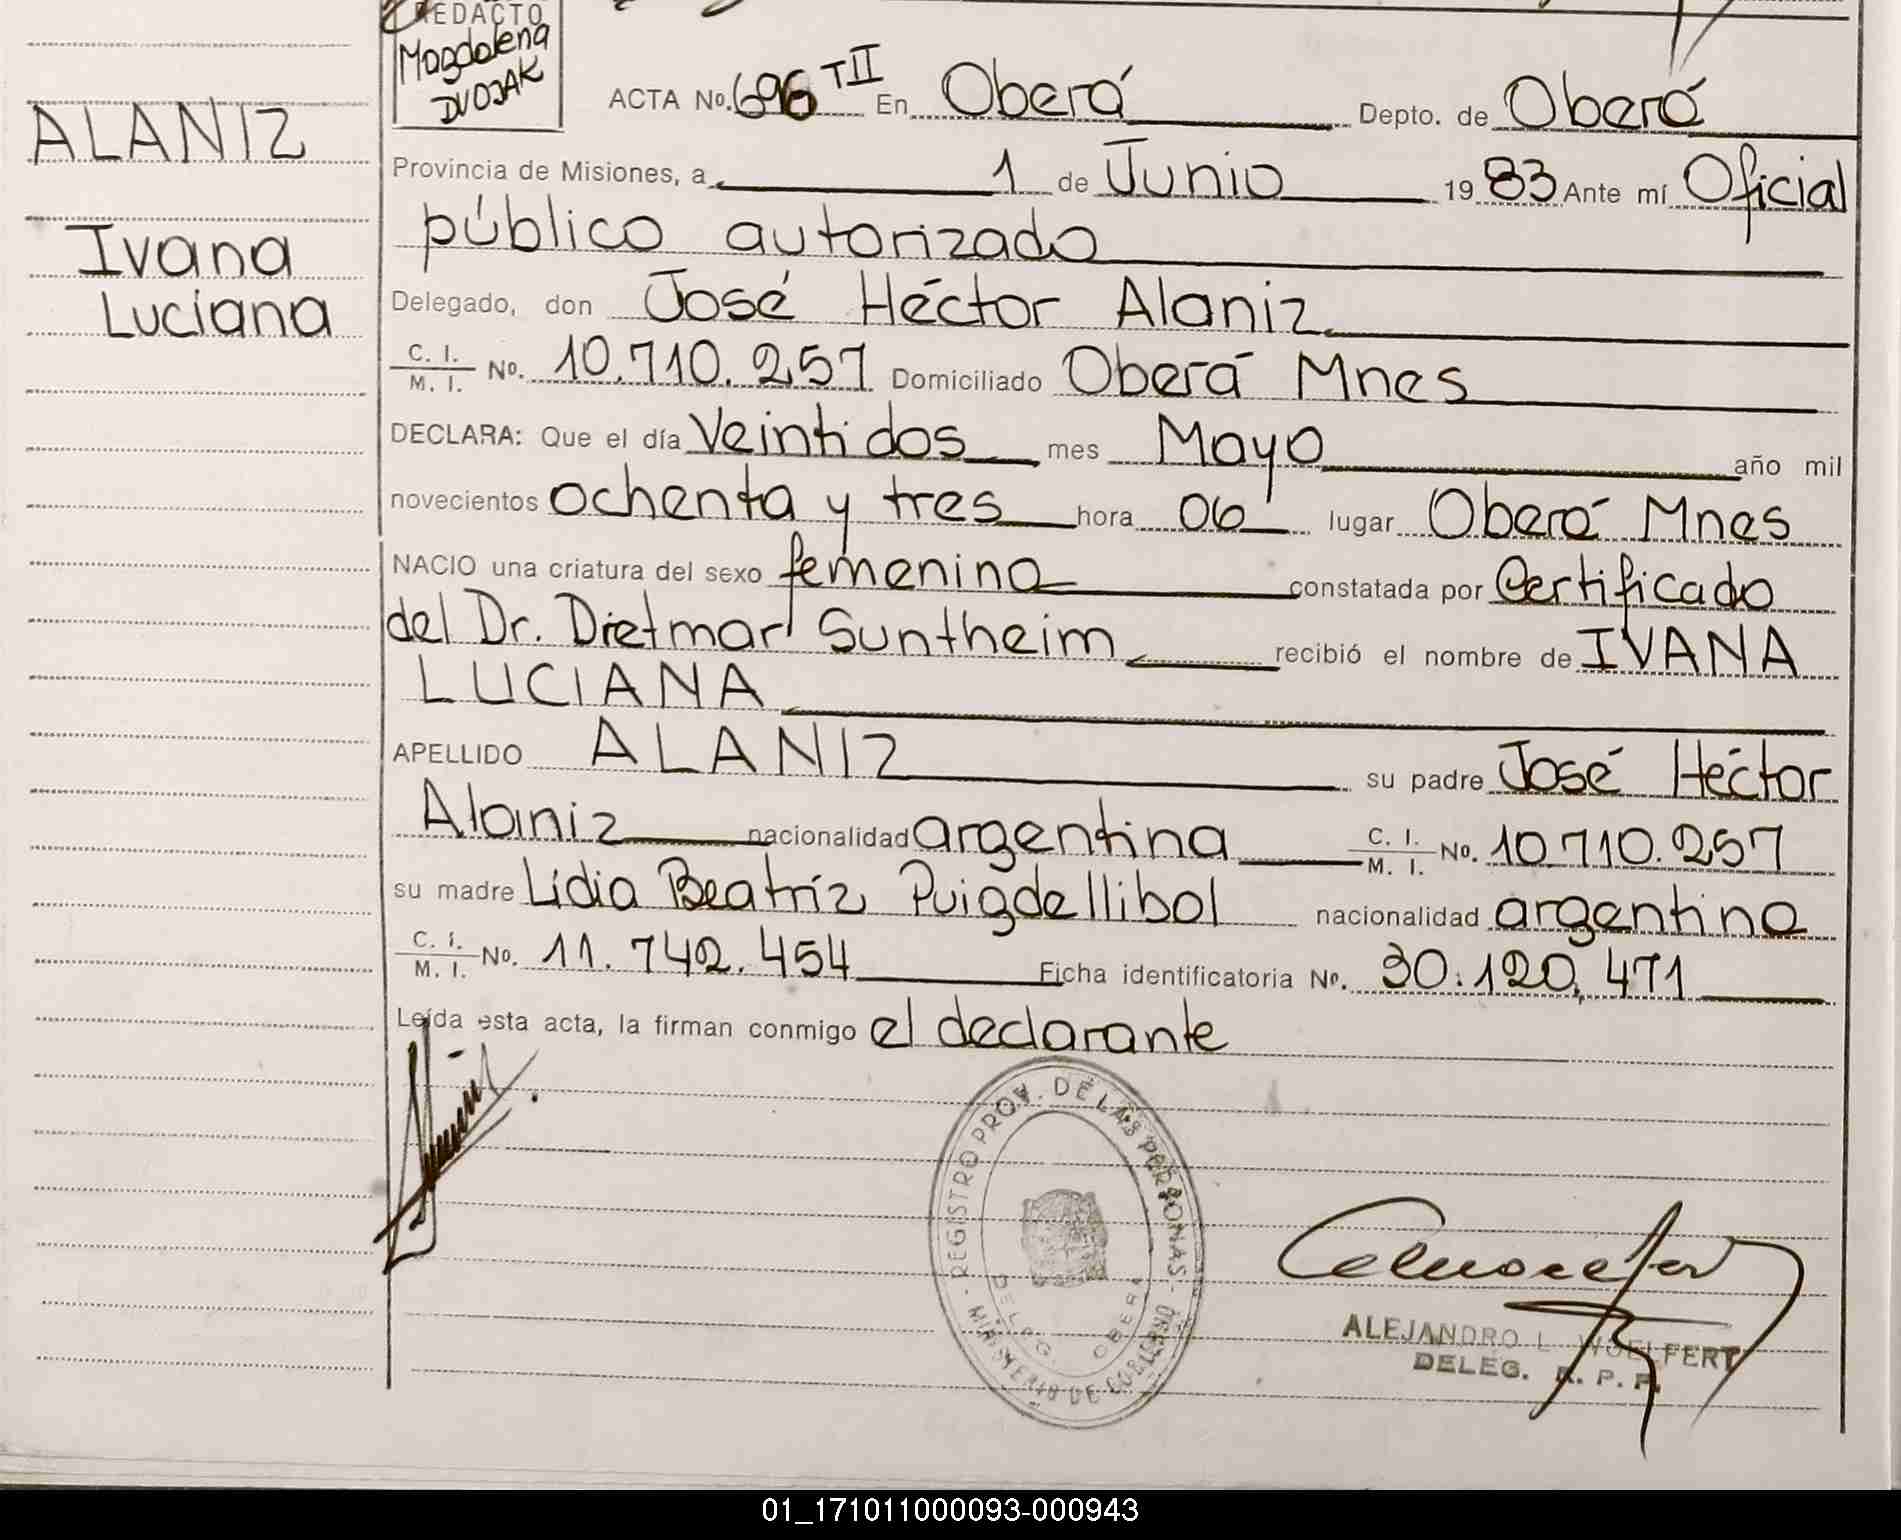 REDACTO
Magdalena
DVOJAK
ALANIZ
Ivana
Luciana
ACTA No. 696 TII En Oberá Depto. de Oberá
Provincia de Misiones, a 1 de Junio 1983 Ante mí Oficial
público autorizado
Delegado, don José Héctor Alaniz
C. I. / M. I. No. 10.710.257 Domiciliado Oberá Mnes
DECLARA: Que el día Veintidos mes Mayo año mil
novecientos ochenta y tres hora 06 lugar Oberá Mnes
NACIO una criatura del sexo femenino constatada por Certificado
del Dr. Dietmar Suntheim recibió el nombre de IVANA
LUCIANA
APELLIDO ALANIZ su padre José Héctor
Alaniz nacionalidad argentina C. I. / M. I. No. 10.710.257
su madre Lidia Beatríz Puigdellibol nacionalidad argentina
C. I. / M. I. No. 11.742.454 Ficha identificatoria No. 30.120.471
Leída esta acta, la firman conmigo el declarante
REGISTRO PROV. DE LAS PERSONAS - MINISTERIO DE GOBIERNO
DELEG. OBERA
ALEJANDRO L. WOELFERT
DELEG. R. P. P.
01_171011000093-000943